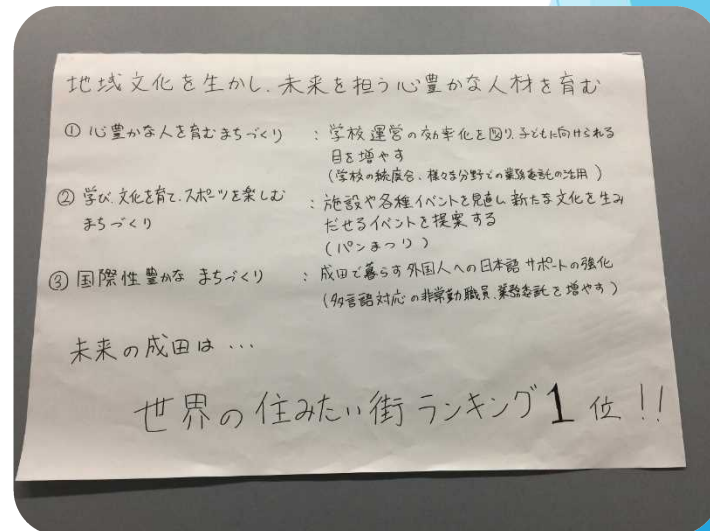 地域文化を生かし、未来を担う心豊かな人材を育む
① 心豊かな人を育むまちづくり : 学校運営の効率化を図り、子どもに向けられる
目を増やす
(学校の統廃合、様々な分野での業務委託の活用)
② 学び、文化を育て、スポーツを楽しむ : 施設や各種イベントを見直し新たな文化を生み
まちづくり だせるイベントを提案する
(パンまつり)
③ 国際性豊かな まちづくり : 成田で暮らす外国人への日本語サポートの強化
(多言語対応の非常勤職員、業務委託を増やす)
未来の成田は…
世界の住みたい街ランキング1位!!